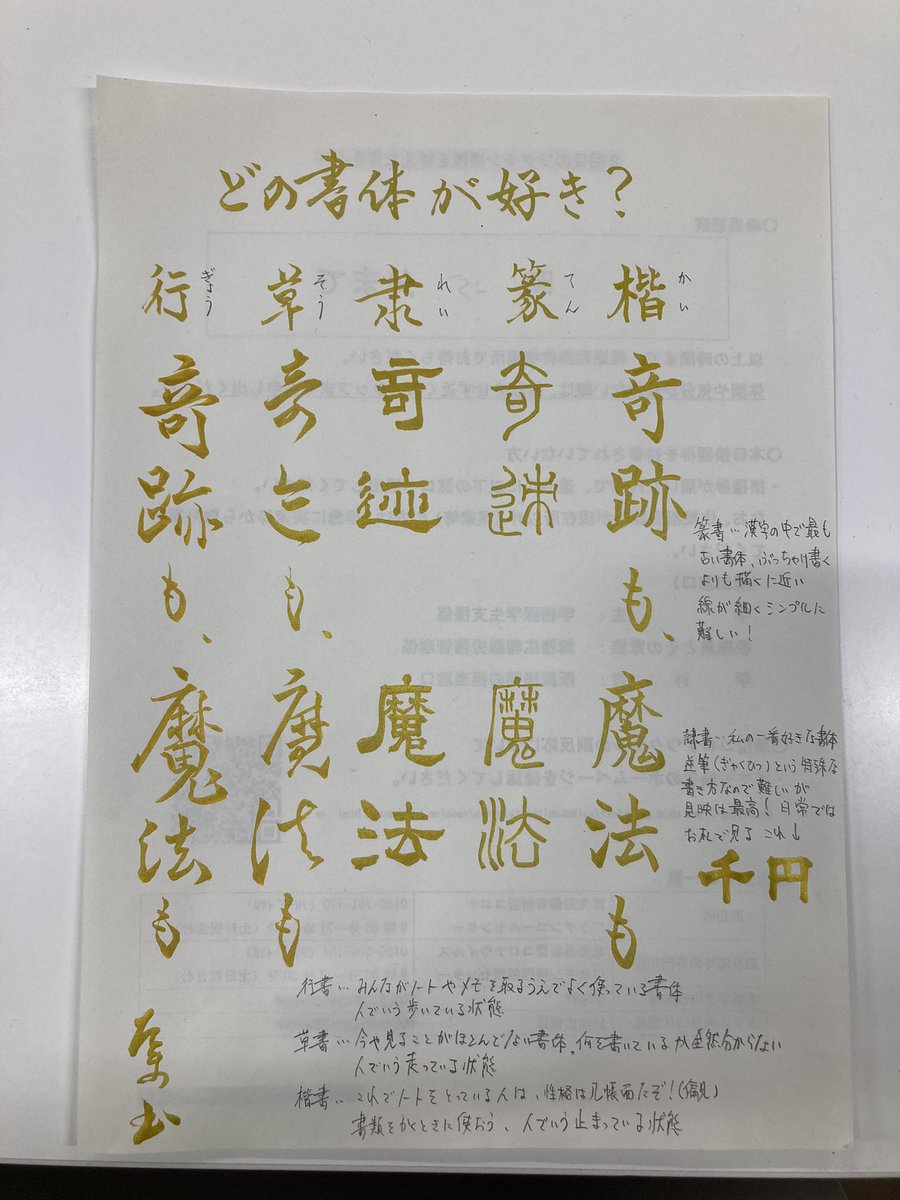 どの書体が好き?
楷 かい
奇跡も、魔法も
篆 てん
奇速 魔法
隶 れい
奇迹 魔法
草 そう
奇跡も、魔法も
行 ぎょう
奇跡も、魔法も
篆書…漢字の中で最も
古い書体、ぶっちゃけ書く
よりも描くに近い
線が細くシンプルに
難しい!
隷書…私の一番好きな書体
逆筆(ぎゃくひつ)という特殊な
書き方なので難しいが
見映は最高!日常では
お札で見る これ↓
千円
行書…みんながノートやメモを取るうえでよく使っている書体
人でいう歩いている状態
草書…今や見ることがほとんどない書体、何を書いているか全然分からない
人でいう走っている状態
楷書…これでノートをとっている人は、性格は几帳面だぞ!(偏見)
書類をかくときに使おう、人でいう止まっている状態